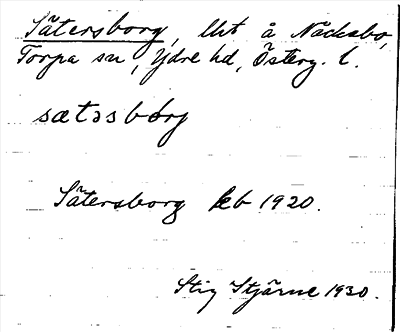 Sätersborg, lht å Näcksbo,
Torpa sn, Ydre hd, Österg. l.
sætəsbórj
Sätersborg kb 1920.
Stig Stjärne 1930.